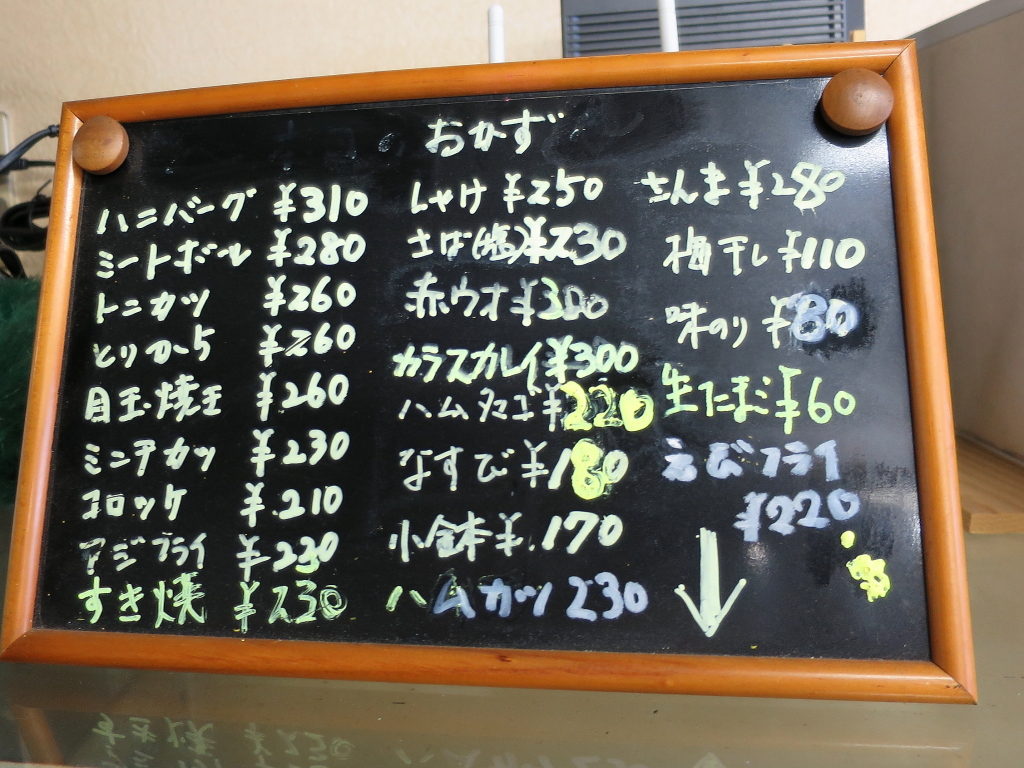 おかず
ハンバーグ ¥310
ミートボール ¥280
トンカツ ¥260
とりから ¥260
目玉焼王 ¥260
ミンチカツ ¥230
コロッケ ¥210
アジフライ ¥230
すき焼 ¥230
しゃけ ¥250
さば(塩)¥230
赤ウオ ¥300
カラスカレイ ¥300
ハムタマゴ ¥220
なすび ¥180
小鉢 ¥170
ハムカツ 230
さんま ¥280
梅干し ¥110
味のり ¥80
生たまご ¥60
えびフライ
¥220